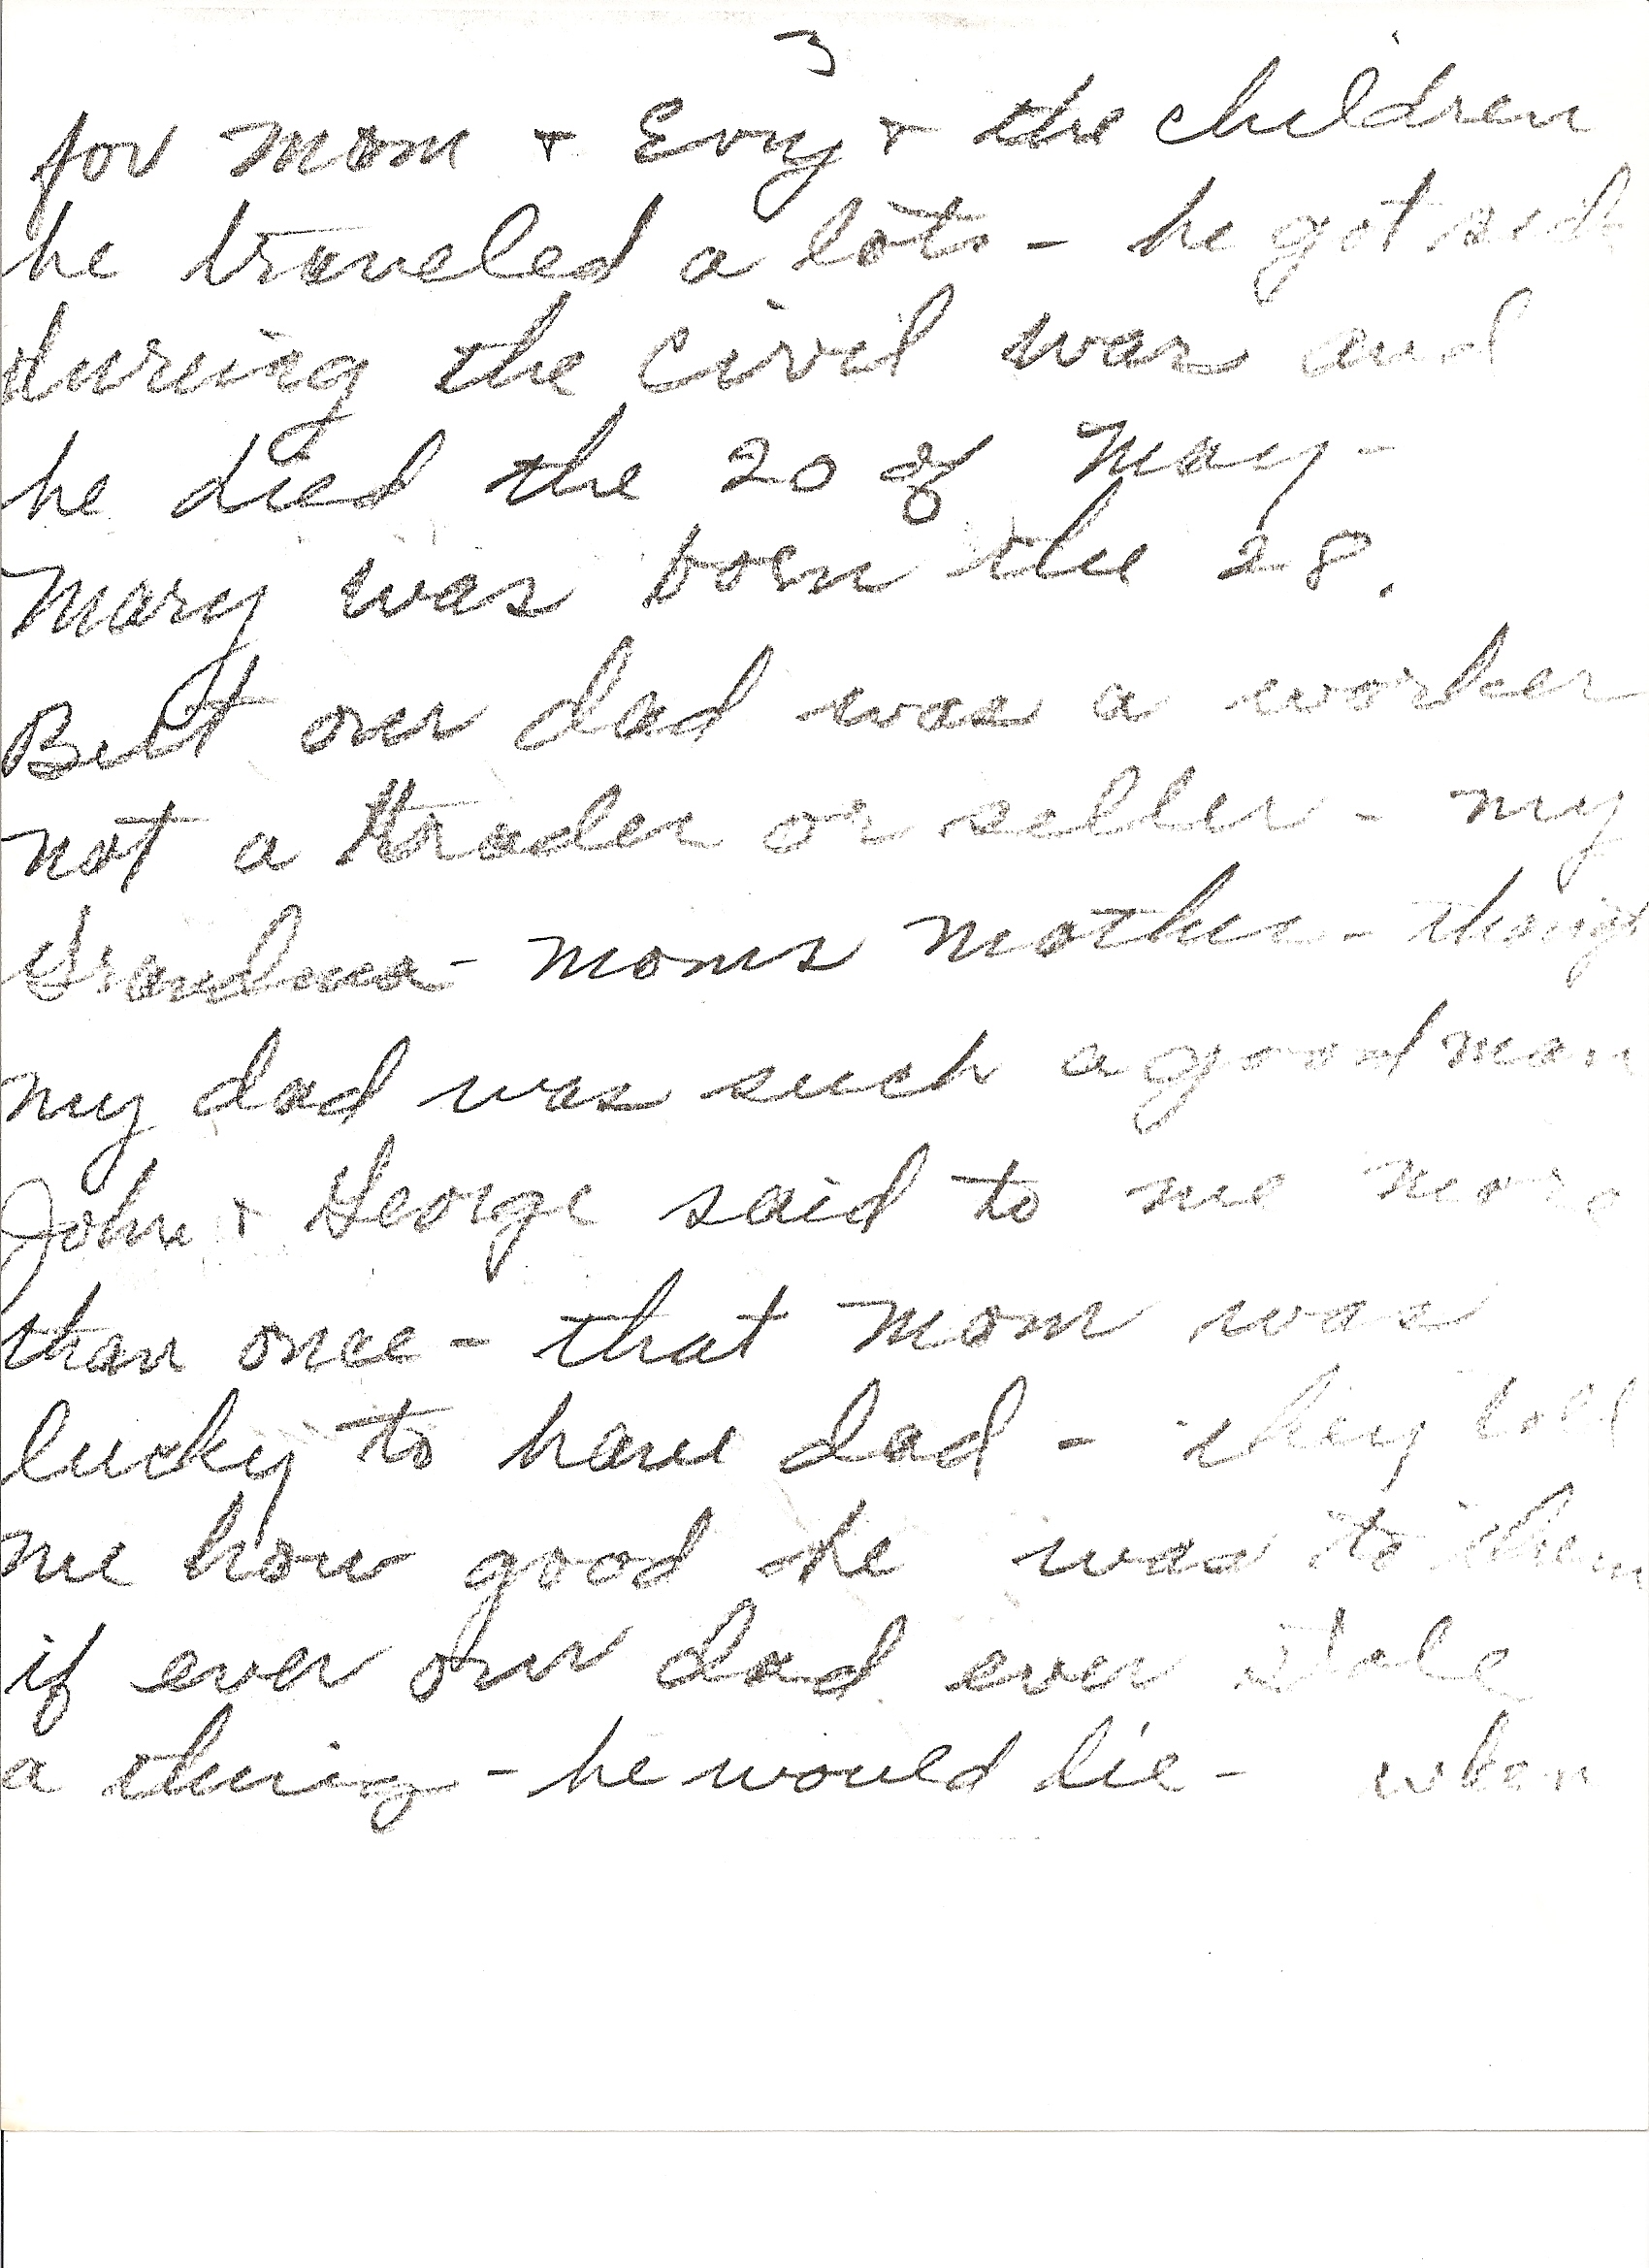 3
for mom + Evy + the children
he traveled a lots - he got sick
during the civil war and
he died the 20 of may -
Mary was born the 28.
But our dad was a worker
not a trader or seller - my
Grandma - moms mother - though
my dad was such a good man
John + George said to me more
than once - that mom was
lucky to have dad - they told
me how good he was to them
if ever our dad ever stole
a thing - he would lie - when